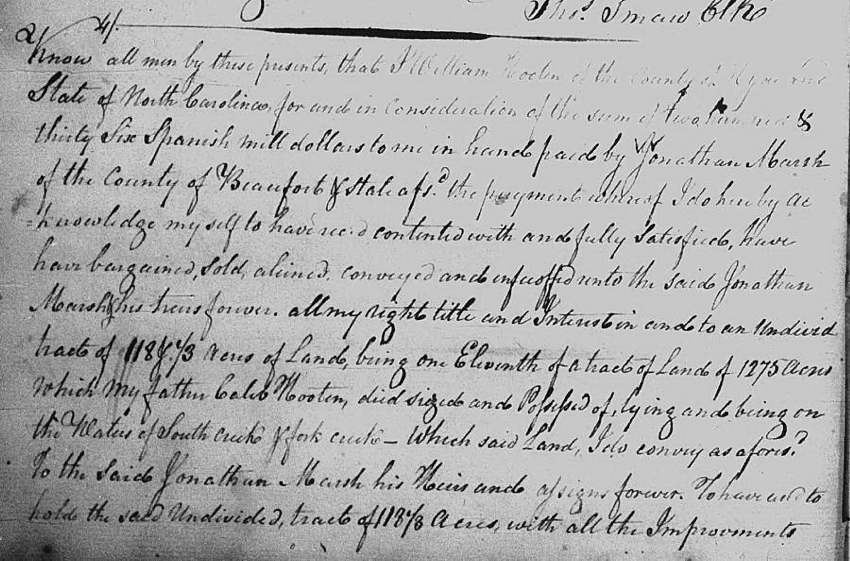 Thos. Smaw Clk
4/.
Know all men by these presents, that I William Hooten of the County of and
State of North Carolina, for and in Consideration of the sum of two hundred &
thirty Six Spanish mill dollars to me in hand paid by Jonathan Marsh
of the County of Beaufort & state afsd. the payment whereof I do hereby ac
=knowledge my self to have recd contented with and fully Satisfied, have
have bargained, Sold, aliened, conveyed and infeoffed unto the said Jonathan
Marsh & his heirs forever. all my right title and Interest in and to an Undivid
tract of Acres of Land, being one Eleventh of a tract of Land of 1275 Acres
Which my father Caleb Hooten, died sized and Possessed of, lying and being on
the Waters of South creek & fork creek — Which said Land, I do convey as aforesd.
To the Said Jonathan Marsh his Heirs and assigns forever. To have and to
hold the said Undivided, tract of Acres, with all the Improvments